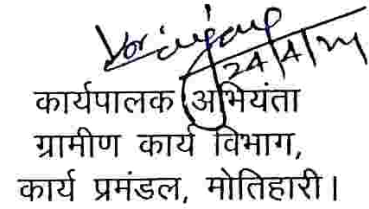 24/4/24
कार्यपालक अभियंता
ग्रामीण कार्य विभाग,
कार्य प्रमंडल, मोतिहारी।